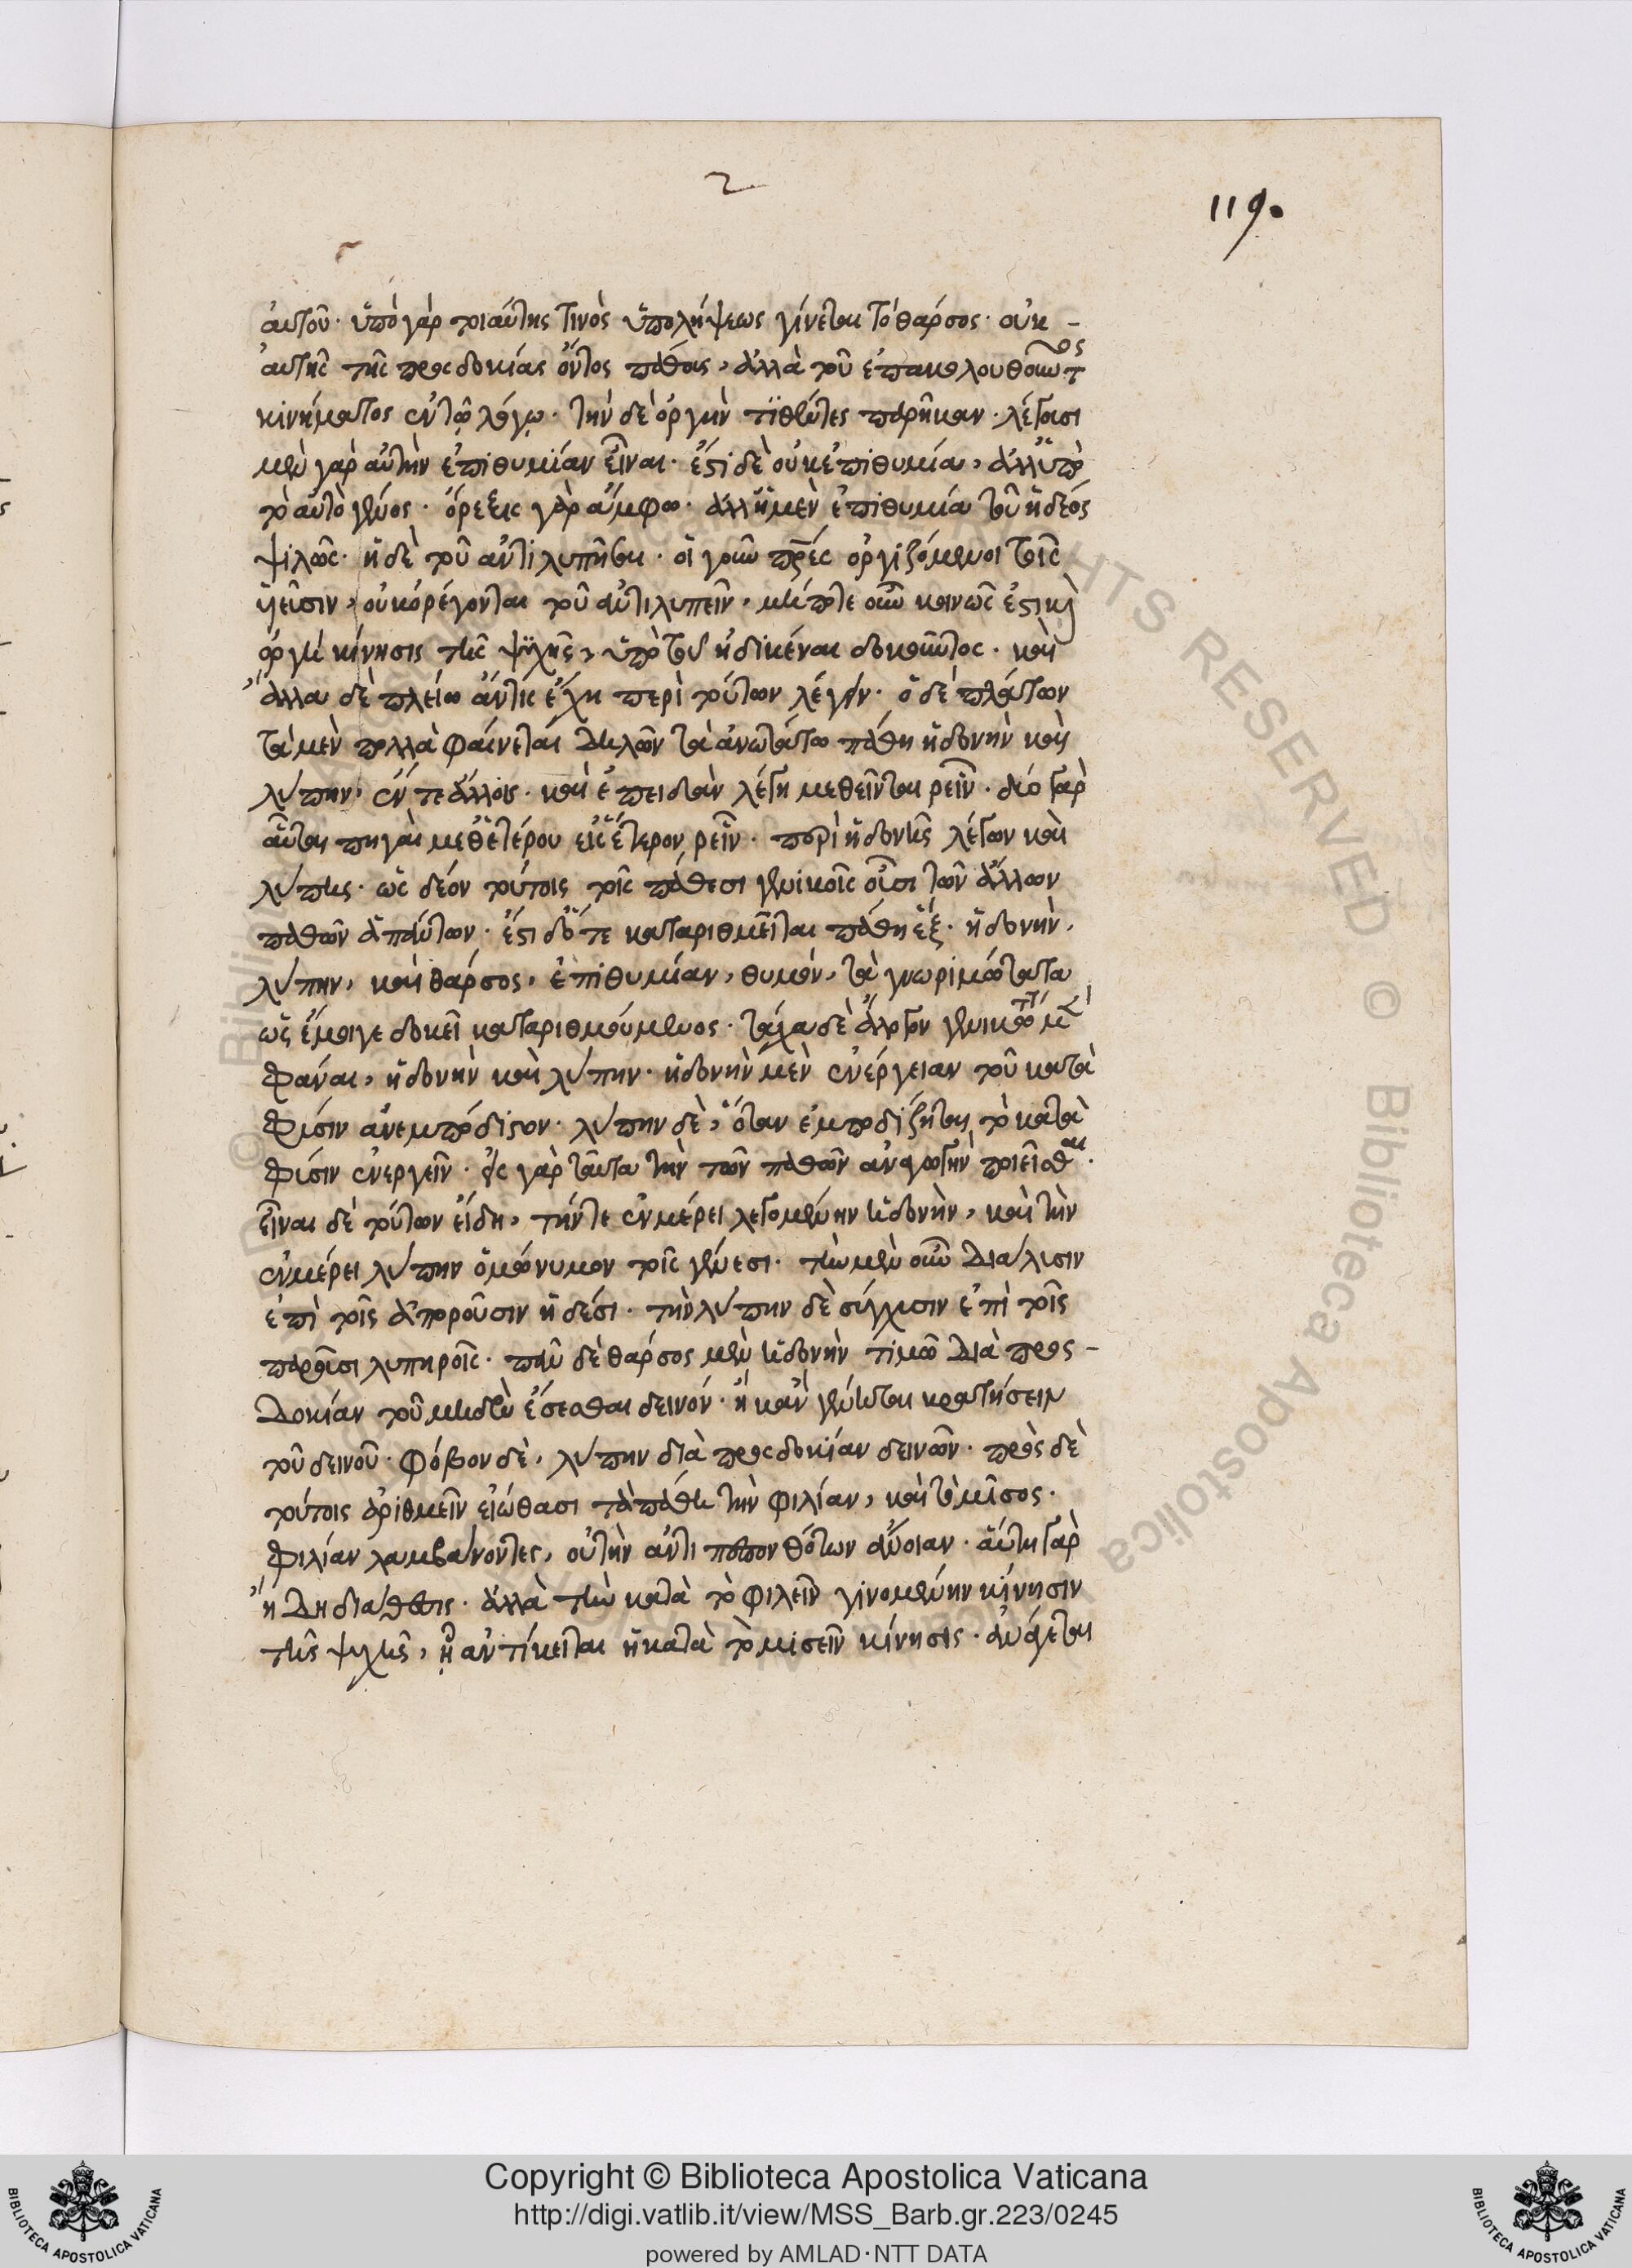 2
119.
αὐτοῦ· ὑπὸ γὰρ τοιαύτης τινὸς ὑπολήψεως γίνεται τὸ θάρσος· οὐκ -
αὐτῆς τῆς προσδοκίας ὄντος πάθους, ἀλλὰ τοῦ ἐπακολουθοῦντος
κινήματος ἐν τῷ λόγῳ· τὴν δὲ ὀργὴν τιθέντες παρῆκαν· λέγουσι
μὲν γὰρ αὐτὴν ἐπιθυμίαν εἶναι· ἔστι δὲ οὐκ ἐπιθυμία, ἀλλ' ὑπὸ
τὸ αὐτὸ γένος· ὄρεξις γὰρ ἄμφω· ἀλλ' ἡ μὲν ἐπιθυμία τοῦ ἡδέος
ψιλῶς· ἡ δὲ τοῦ ἀντιλυπῆσαι· οἱ γοῦν πρες ὀργιζόμενοι τοῖς
υἱεῦσιν, οὐκ ὀρέγονται τοῦ ἀντιλυπεῖν, μήποτε οὖν κοινῶς ἐστι καὶ
ὀργὴ κίνησις τῆς ψυχῆς, ὑπὸ τοῦ ἠδικέναι δοκοῦντος· καὶ
ἄλλα δὲ πλείω ἄν τις ἔχῃ περὶ τούτων λέγειν· ὁ δὲ πλάτων
τὰ μὲν πολλὰ φαίνεται δηλῶν τὰ ἀνωτάτω πάθη ἡδονὴν καὶ
λύπην, ἔν τε ἄλλοις· καὶ ἐπειδὰν λέγῃ μεθεῖνται ῥεῖν· δύο γὰρ
αὗται πηγαὶ μεθ' ἑτέρου εἰς ἕτερον ῥεῖν· περὶ ἡδονῆς λέγων καὶ
λύπης· ὡς δέον τούτοις τοῖς πάθεσι γενικοῖς οὖσι τῶν ἄλλων
παθῶν ἁπάντων· ἔστι δ' ὅτε καταριθμεῖται πάθη ἕξ· ἡδονὴν,
λύπην, καὶ θάρσος, ἐπιθυμίαν, θυμὸν, τὰ γνωριμώτατα
ὥς ἔμοιγε δοκεῖ καταριθμούμενος· τάχα δὲ ἄλογον γενικώτατα μὲν
φάναι, ἡδονὴν καὶ λύπην· ἡδονὴν μὲν ἐνέργειαν τοῦ κατὰ
φύσιν ἀνεμπόδιστον· λύπην δὲ, ὅταν ἐμποδίζηται τὸ κατὰ
φύσιν ἐνεργεῖν· εἰς γὰρ ταῦτα τὴν τῶν παθῶν ἀναγωγὴν ποιεῖσθαι·
εἶναι δὲ τούτων εἴδη, τήν τε ἐν μέρει λεγομένην ἡδονὴν, καὶ τὴν
ἐν μέρει λύπην ὁμώνυμον τοῖς γένεσι· τὴν μὲν οὖν διάχυσιν
ἐπὶ τοῖς ἀποροῦσιν ἡδέσι· τὴν λύπην δὲ σύγχυσιν ἐπὶ τοῖς
παροῦσι λυπηροῖς· πᾶν δὲ θάρσος μὲν ἡδονὴν τινα διὰ προς -
δοκίαν τοῦ μηδὲν ἔσεσθαι δεινόν· ἢ κἂν γένηται κρατήσειν
τοῦ δεινοῦ· φόβον δὲ, λύπην διὰ προσδοκίαν δεινῶν· πρὸς δὲ
τούτοις ἀριθμεῖν εἰώθασι τὰ πάθη τὴν φιλίαν, καὶ τὸ μῖσος·
φιλίαν λαμβάνοντες, οὐ τὴν ἀντιπεπονθότων εὔνοιαν· αὕτη γὰρ
ἤδη διάθεσις· ἀλλὰ τὴν κατὰ τὸ φιλεῖν γινομένην κίνησιν
τῆς ψυχῆς, ᾗ ἀντίκειται ἡ κατὰ τὸ μισεῖν κίνησις· ἀνάγεται
© Biblioteca Apostolica Vaticana
RIGHTS RESERVED
Copyright © Biblioteca Apostolica Vaticana
http://digi.vatlib.it/view/MSS_Barb.gr.223/0245
powered by AMLAD·NTT DATA
BIBLIOTECA APOSTOLICA VATICANA
BIBLIOTECA APOSTOLICA VATICANA